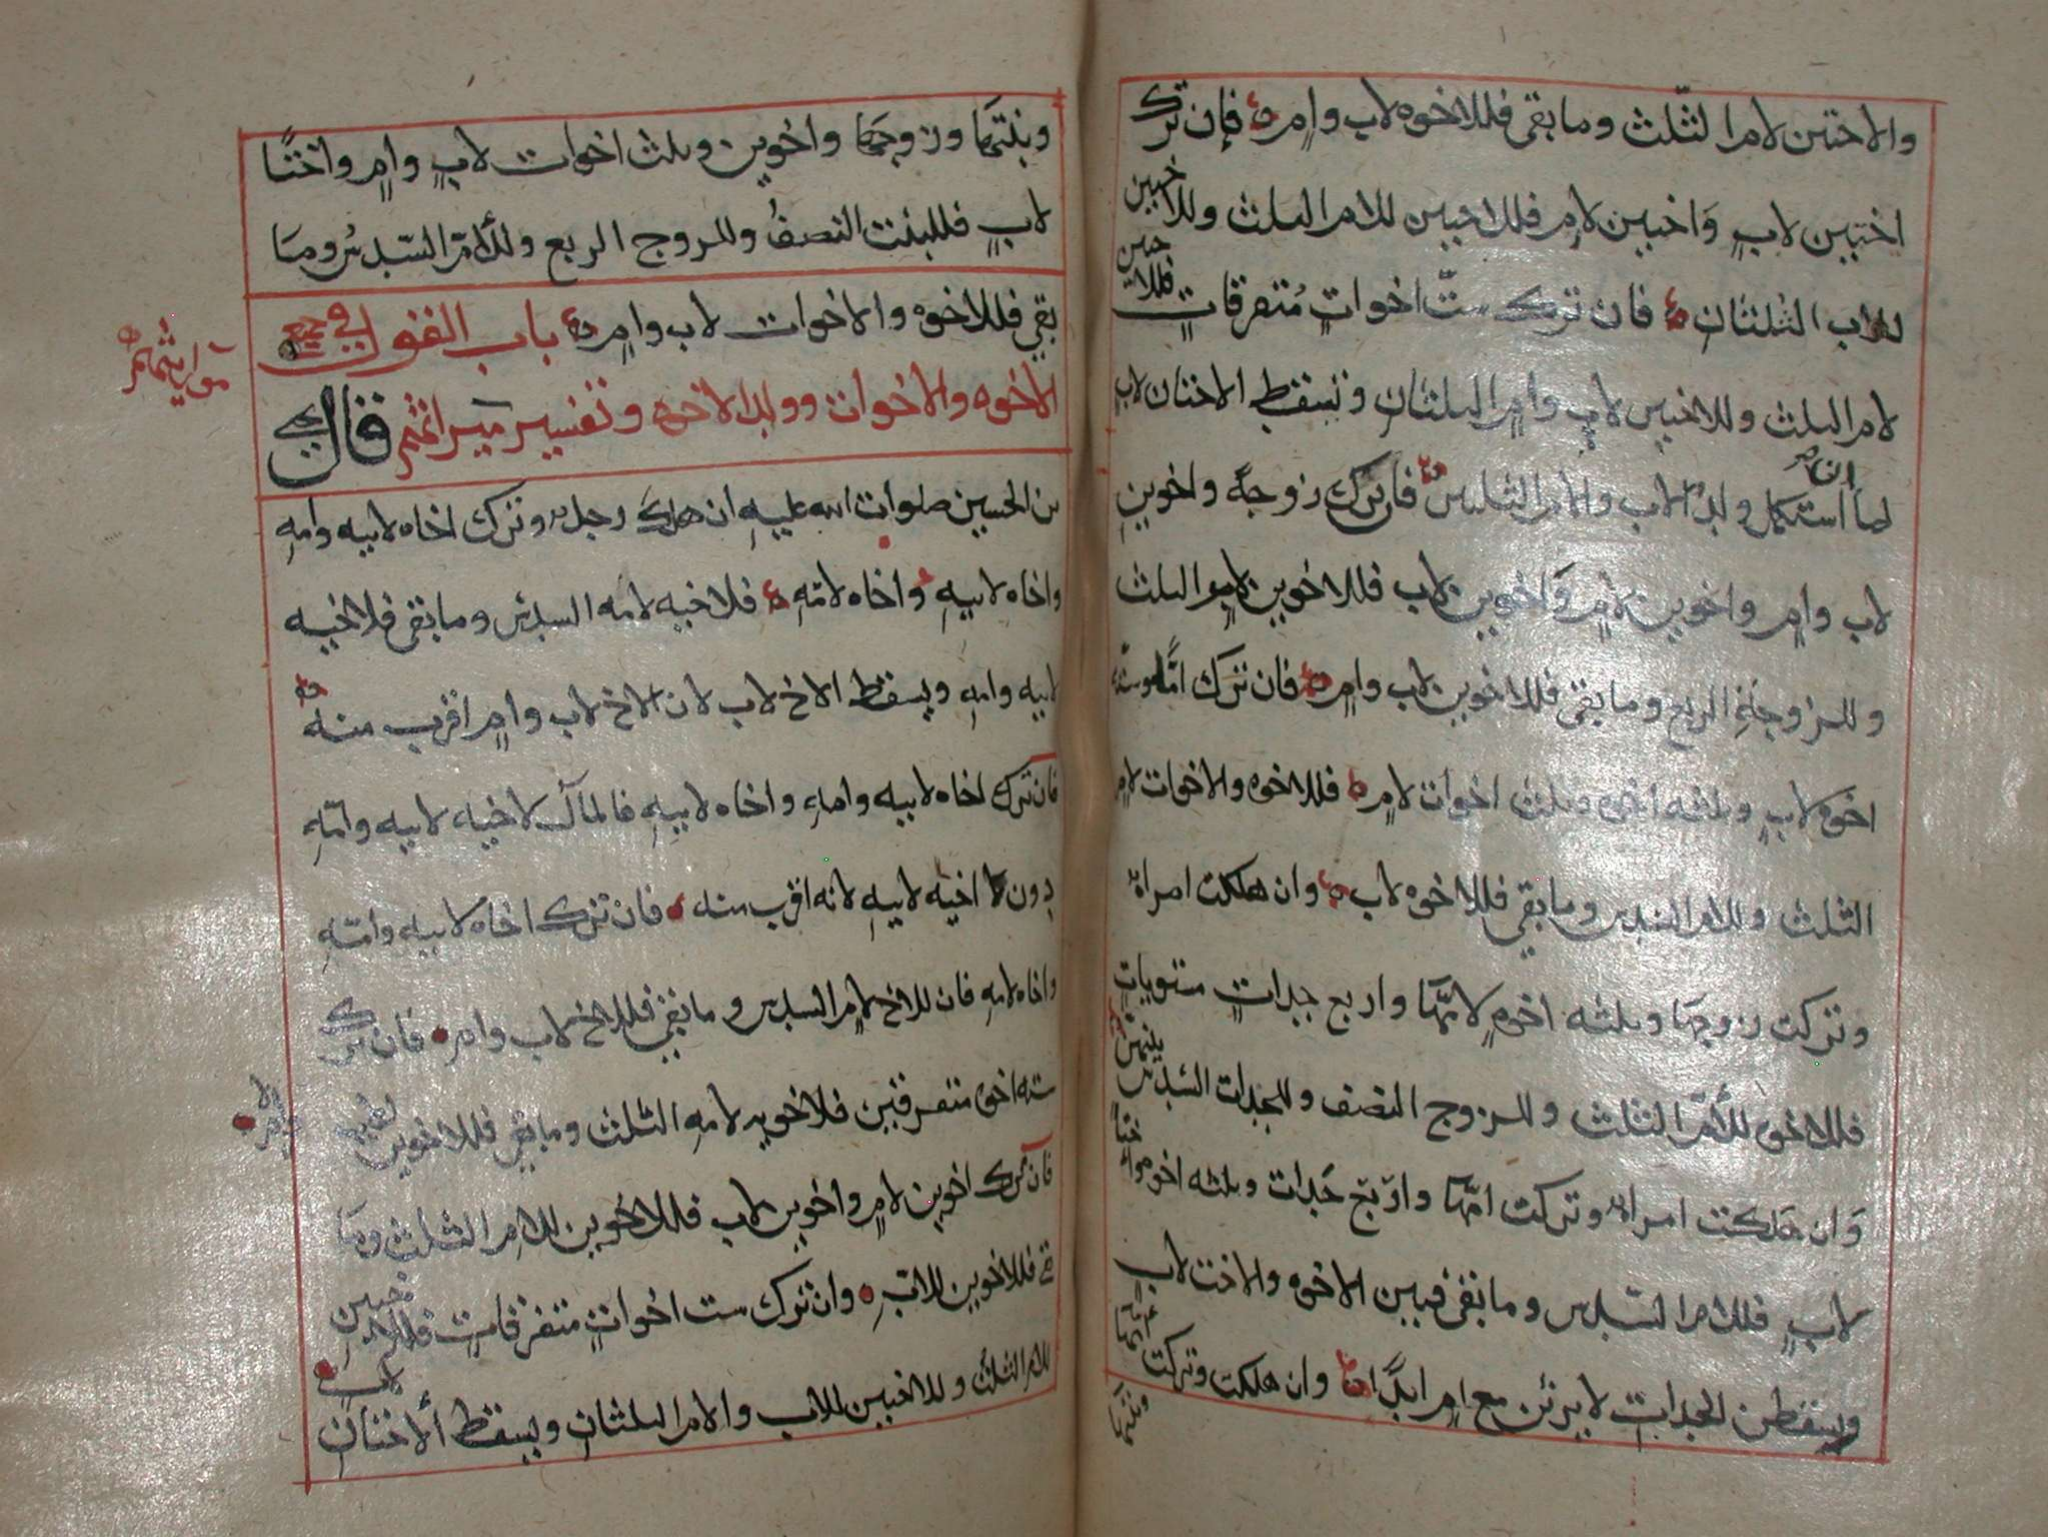 والاختين لام الثلث وما بقى فللاخوه لاب وام فإن ترك
اختين لاب واختين لام فللاختين للام الثلث وللاختين
للاب الثلثان فان ترك ست اخوات متفرقات فللاختين
لام الثلث وللاختين لاب وام الثلثان وتسقط الاختان لاب
لما ان استكمل ولد الاب والام الثلثين فان ترك زوجة واخوين
لاب وام واخوين لام واخوين لاب فللاخوين لام الثلث
وللزوجة الربع وما بقى فللاخوين لاب وام فان ترك اما وستة
اخوه لاب وثلثه اخوه وثلث اخوات لام فللاخوه والاخوات لام
الثلث وللام السدس وما بقي فللاخوه لاب وان هلكت امراة
وتركت زوجها وثلثه اخوه لامها واربع جدات مستويات
فللاخوه للأم الثلث وللزوج النصف وللجدات السدس بينهن
وان هلكت امراة وتركت امها واربع جدات وثلثه اخوه واختا
لاب فللام السدس وما بقى فبين الاخوه والاخت لاب
ويسقطن الجدات لا يرثن مع ام ابدا وان هلكت وتركت امها
وبنتها
وبنتها وزوجها واخوين وثلث اخوات لاب وام واختا
لاب فللبنت النصف وللزوج الربع وللأم السدس وما
بقي فللاخوه والاخوات لاب وام باب القول في جميع
الاخوه والاخوات وولد الاخوه وتفسير ميراثهم قال يحيى
مواريثهم
بن الحسين صلوات الله عليه ان هلك رجل وترك اخاه لابيه وامه
واخاه لابيه واخاه لامه فلاخيه لامه السدس وما بقى فلاخيه
لابيه وامه ويسقط الاخ لاب لان الاخ لاب وام اقرب منه
فان ترك اخاه لابيه وامه واخاه لابيه فالمال لاخيه لابيه وامه
دون اخيه لابيه لانه اقرب منه فان ترك اخاه لابيه وامه
واخاه لامه فان للاخ لام السدس وما بقي فللاخ لاب وام فان ترك
سته اخوه متفرقين فلاخويه لامه الثلث وما بقي فللاخوين
فان ترك اخوين لام واخوين لاب فللاخوين للام الثلث وما
بقى فللاخوين للاب وان ترك ست اخوات متفرقات فللاختين
للام الثلث وللاختين للاب والام الثلثان ويسقط الاختان
لاب